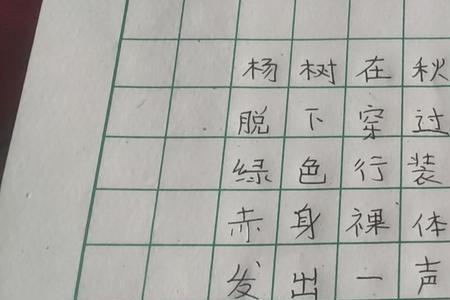 杨树在秋
脱下穿过
绿色行装
赤身裸体
发出一声